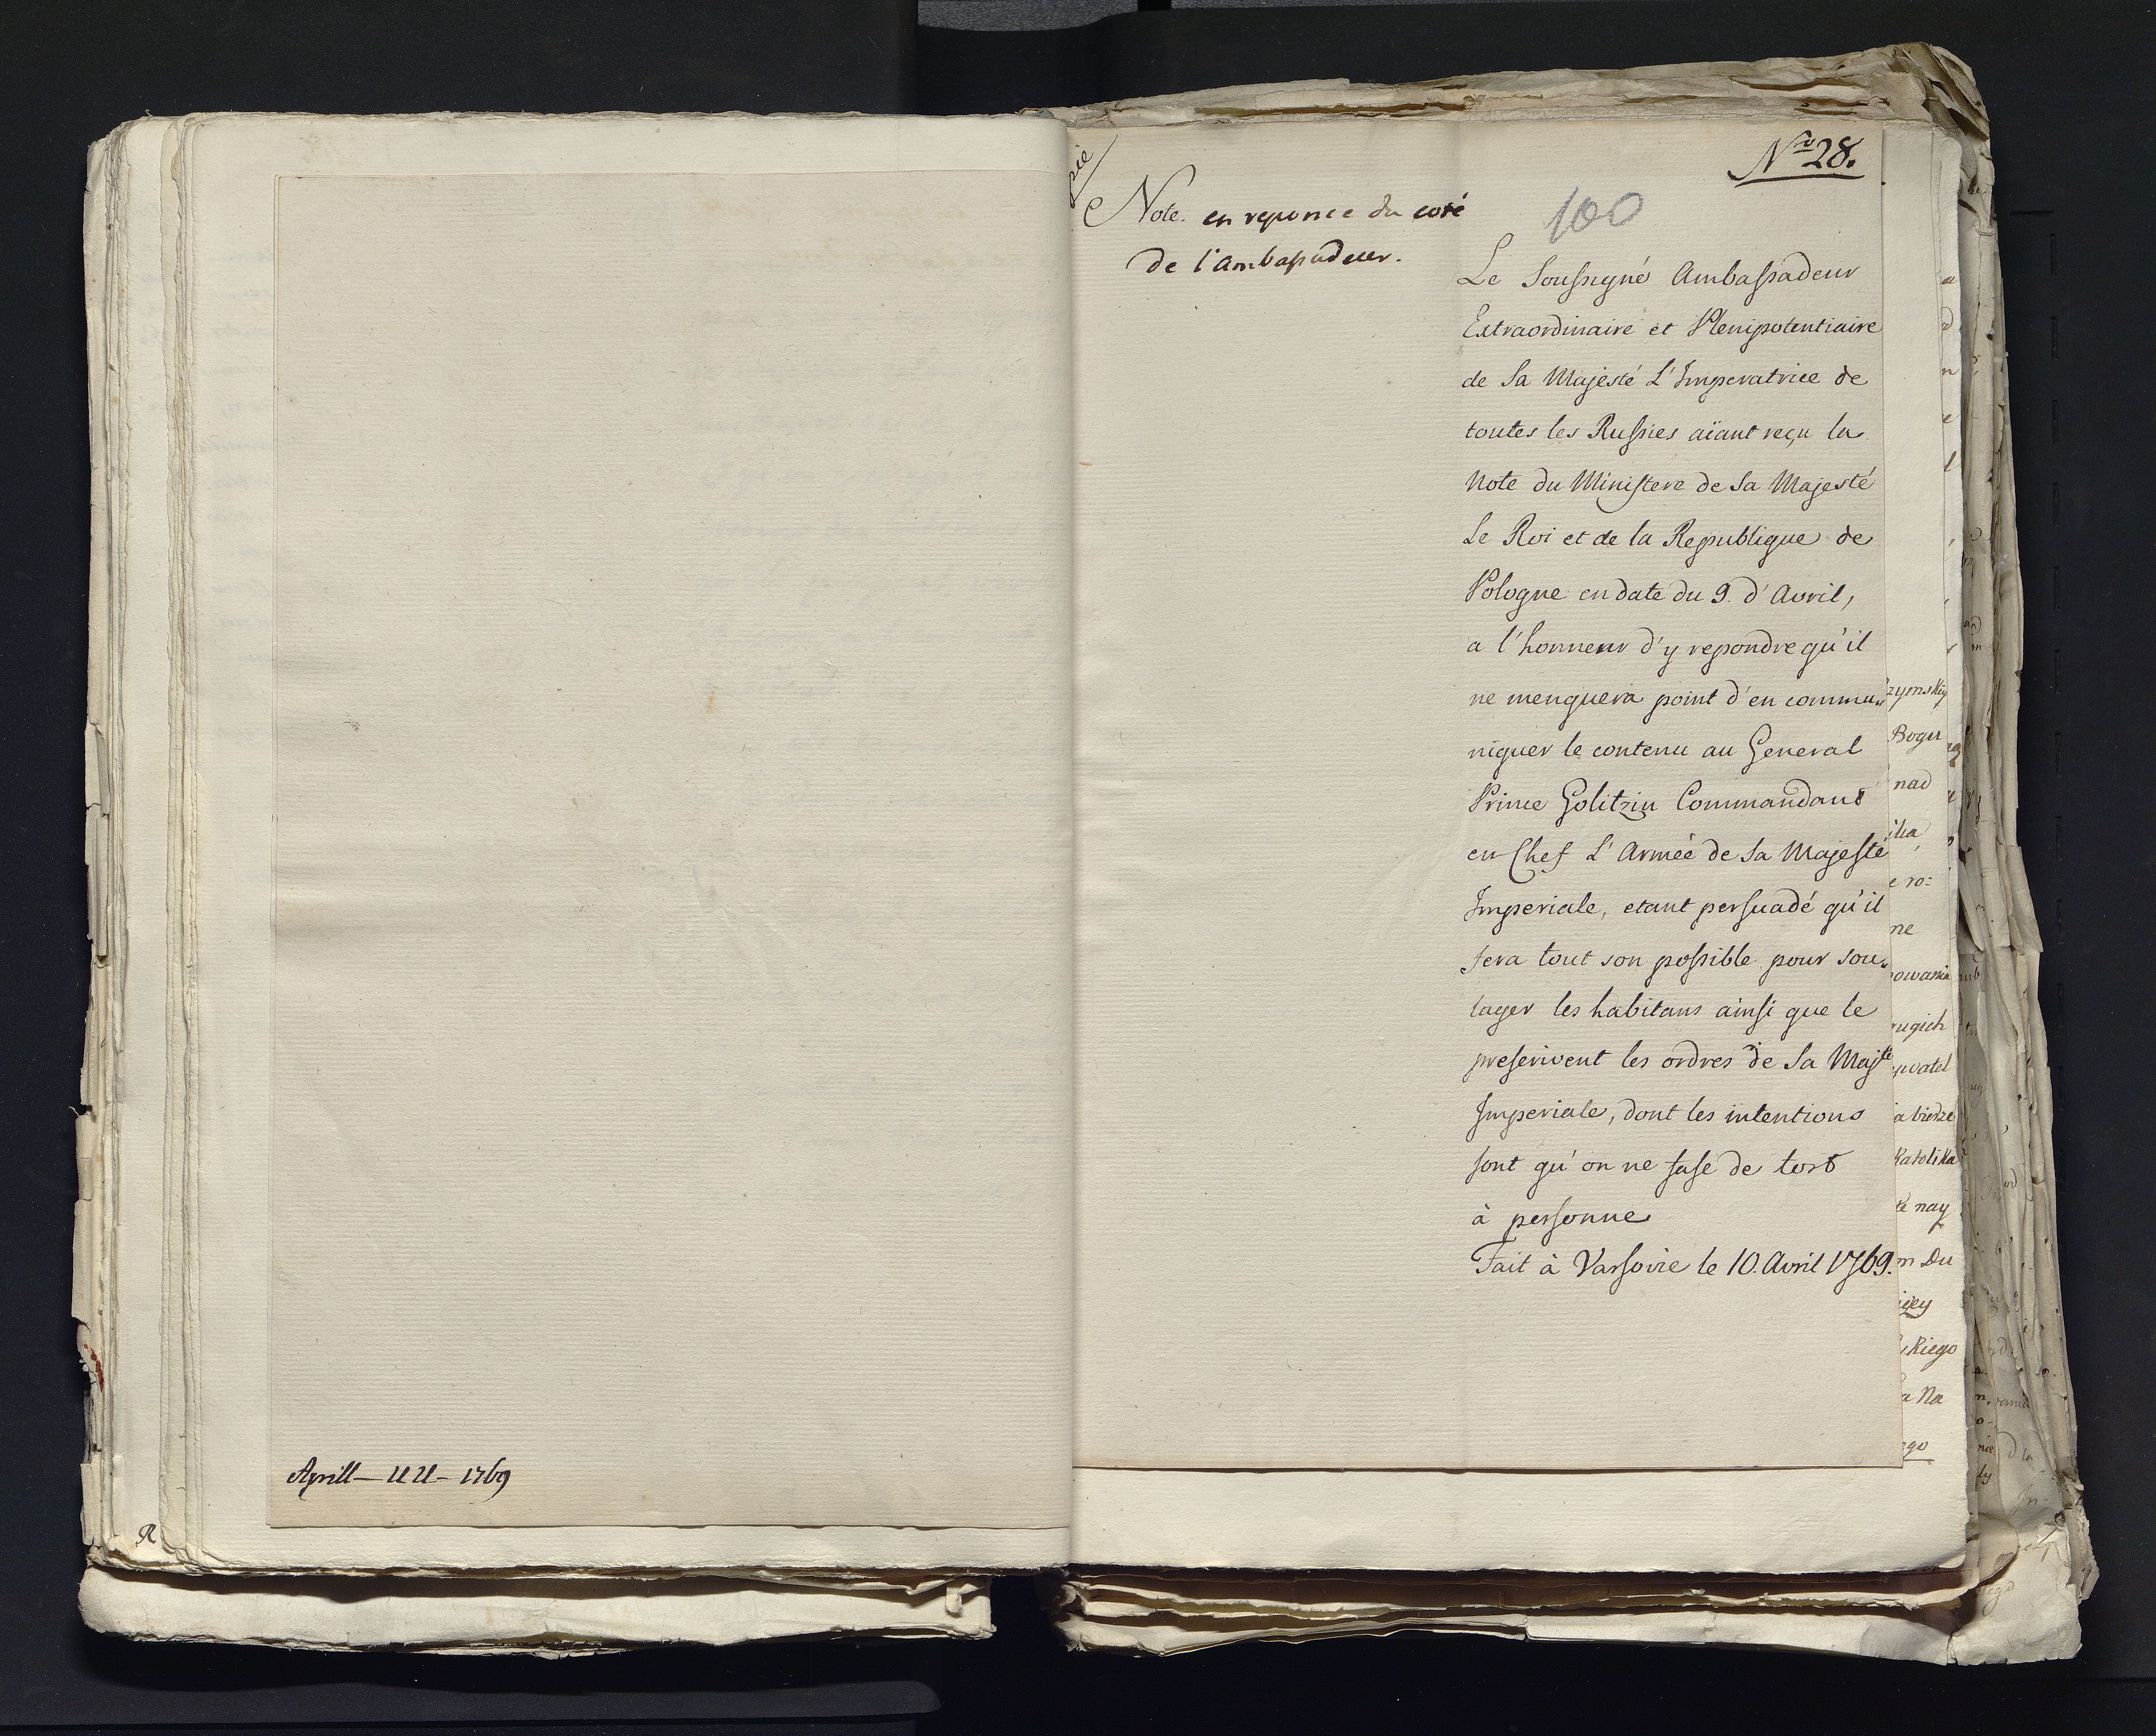 Aprill — 1769
R
No 28.
100
Note. en reponce du coté
de l'Ambassadeur.
Le Soussigné Ambassadeur
Extraordinaire et Plenipotentiaire
de Sa Majesté L'Imperatrice de
toutes les Russies aïant reçu la
Note du Ministere de Sa Majesté
Le Roi et de la Republique de
Pologne en date du 9. d'Avril,
a l'honneur d'y repondre qu'il
ne menquera point d'en commu„
niquer le contenu au General
Prince Golitzin Commandant
en Chef L'Armée de Sa Majesté
Imperiale, etant persuadé qu'il
fera tout son possible pour sou„
lager les habitans ainsi que le
prescrivent les ordres de Sa Majté
Imperiale, dont les intentions
sont qu'on ne fasse de tort
à personne
Fait à Varsovie le 10. Avril 1769.
zymskiy
Bogu
nad
ne
owania
ugich
a bierze
Katolika
nay
Du
kiego
a Na